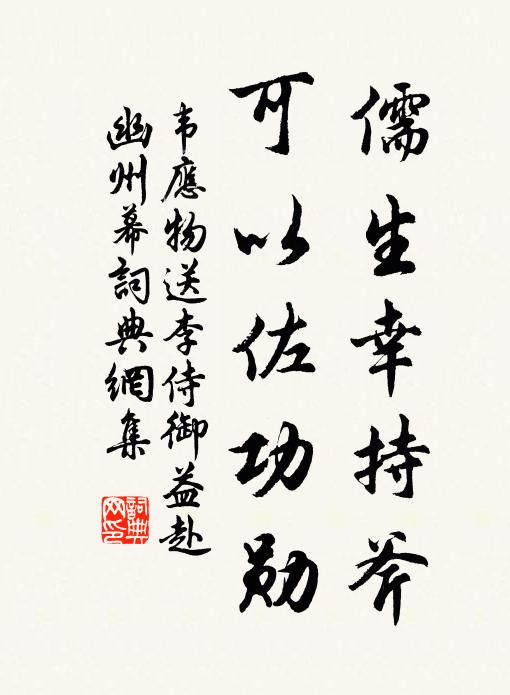 儒生幸持斧
可以佐功勛
韦應物送李侍御益赴
幽州幕詞典網集
詞典
网印